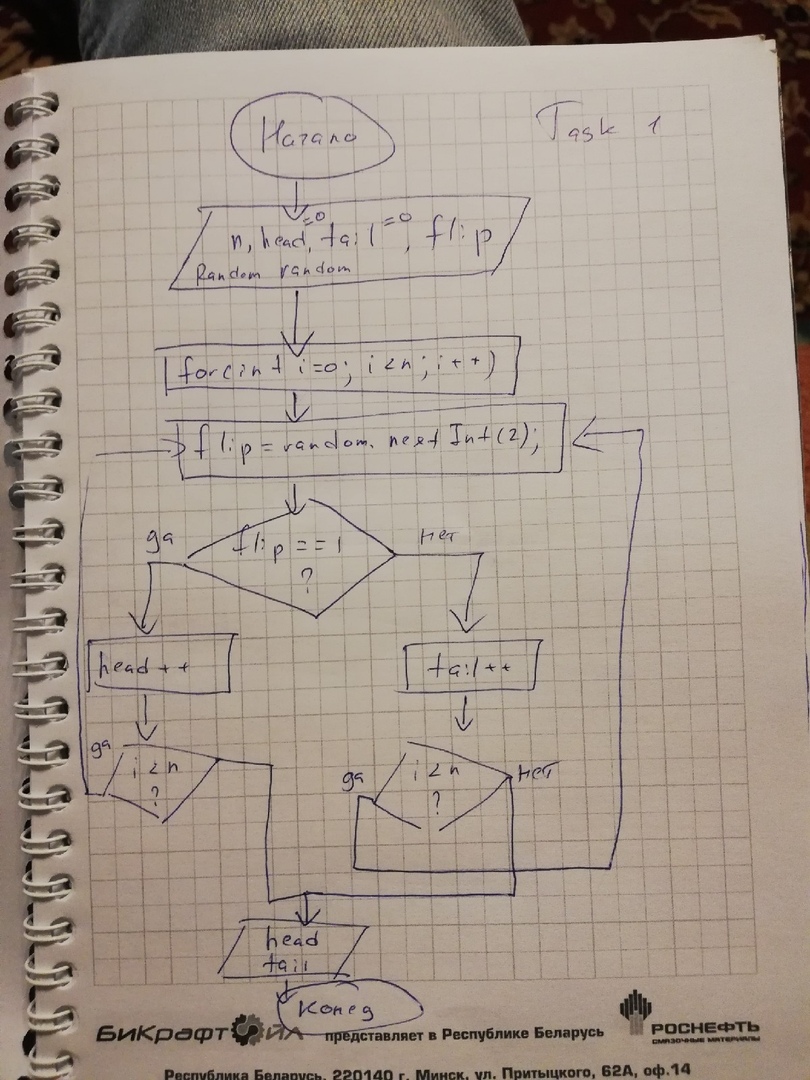 Начало
Task 1
=0 =0
n, head, tail, flip
Random random
for(int i=0; i<n; i++)
flip = random.nextInt(2);
да
flip == 1
?
нет
head++
tail++
да
i<n
?
да
i<n
?
нет
head
tail
Конец
БиКрафтОйл представляет в Республике Беларусь
РОСНЕФТЬ
СМАЗОЧНЫЕ МАТЕРИАЛЫ
Республика Беларусь, 220140 г. Минск, ул. Притыцкого, 62А, оф.14